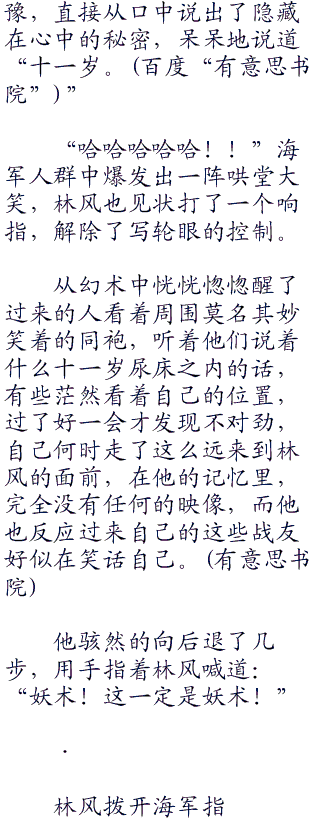 豫，直接从口中说出了隐藏
在心中的秘密，呆呆地说道
“十一岁。(百度“有意思书
院”)”
“哈哈哈哈哈！！”海
军人群中爆发出一阵哄堂大
笑，林风也见状打了一个响
指，解除了写轮眼的控制。
从幻术中恍恍惚惚醒了
过来的人看着周围莫名其妙
笑着的同袍，听着他们说着
什么十一岁尿床之内的话，
有些茫然看着自己的位置，
过了好一会才发现不对劲，
自己何时走了这么远来到林
风的面前，在他的记忆里，
完全没有任何的映像，而他
也反应过来自己的这些战友
好似在笑话自己。(有意思书
院)
他骇然的向后退了几
步，用手指着林风喊道：
“妖术！这一定是妖术！”
.
林风拨开海军指